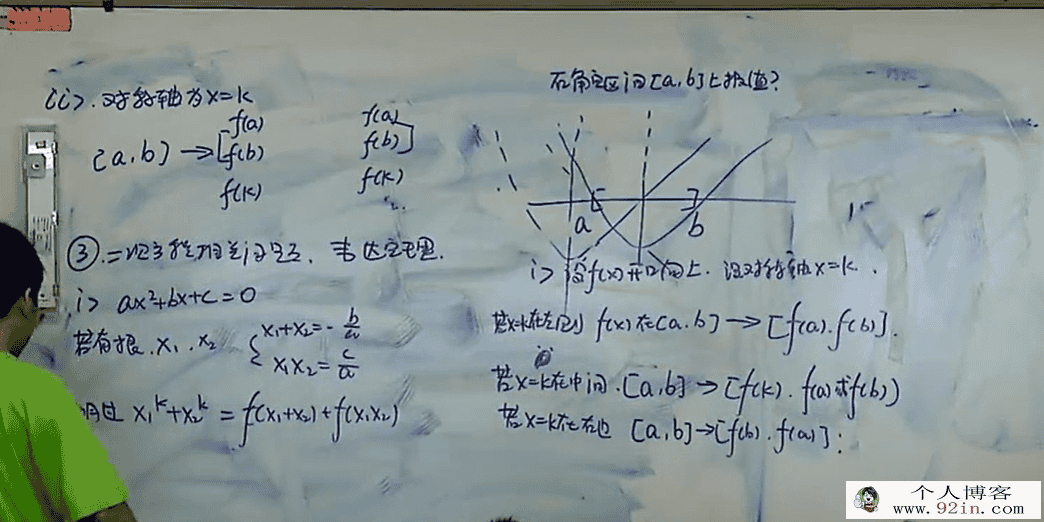 (ii>. 对称轴为x=k
f(a) f(a)
[a,b] → [f(b) f(b)]
f(k) f(k)
③.二次方程相关问题. 韦达定理.
i> ax²+bx+c=0
若有根.x₁.x₂ { x₁+x₂=-b/a
x₁x₂=c/a
x₁ᵏ+x₂ᵏ=f(x₁+x₂)+f(x₁x₂)
在确定区间[a,b]上最值?
a b
i> 设f(x)开口向上. 设对称轴x=k.
若x=k在左边 f(x)在[a,b] → [f(a).f(b)].
若x=k在中间.[a,b] → [f(k).f(a)或f(b))
若x=k在右边 [a,b]→[f(b).f(a)];
个人博客
www.92in.com